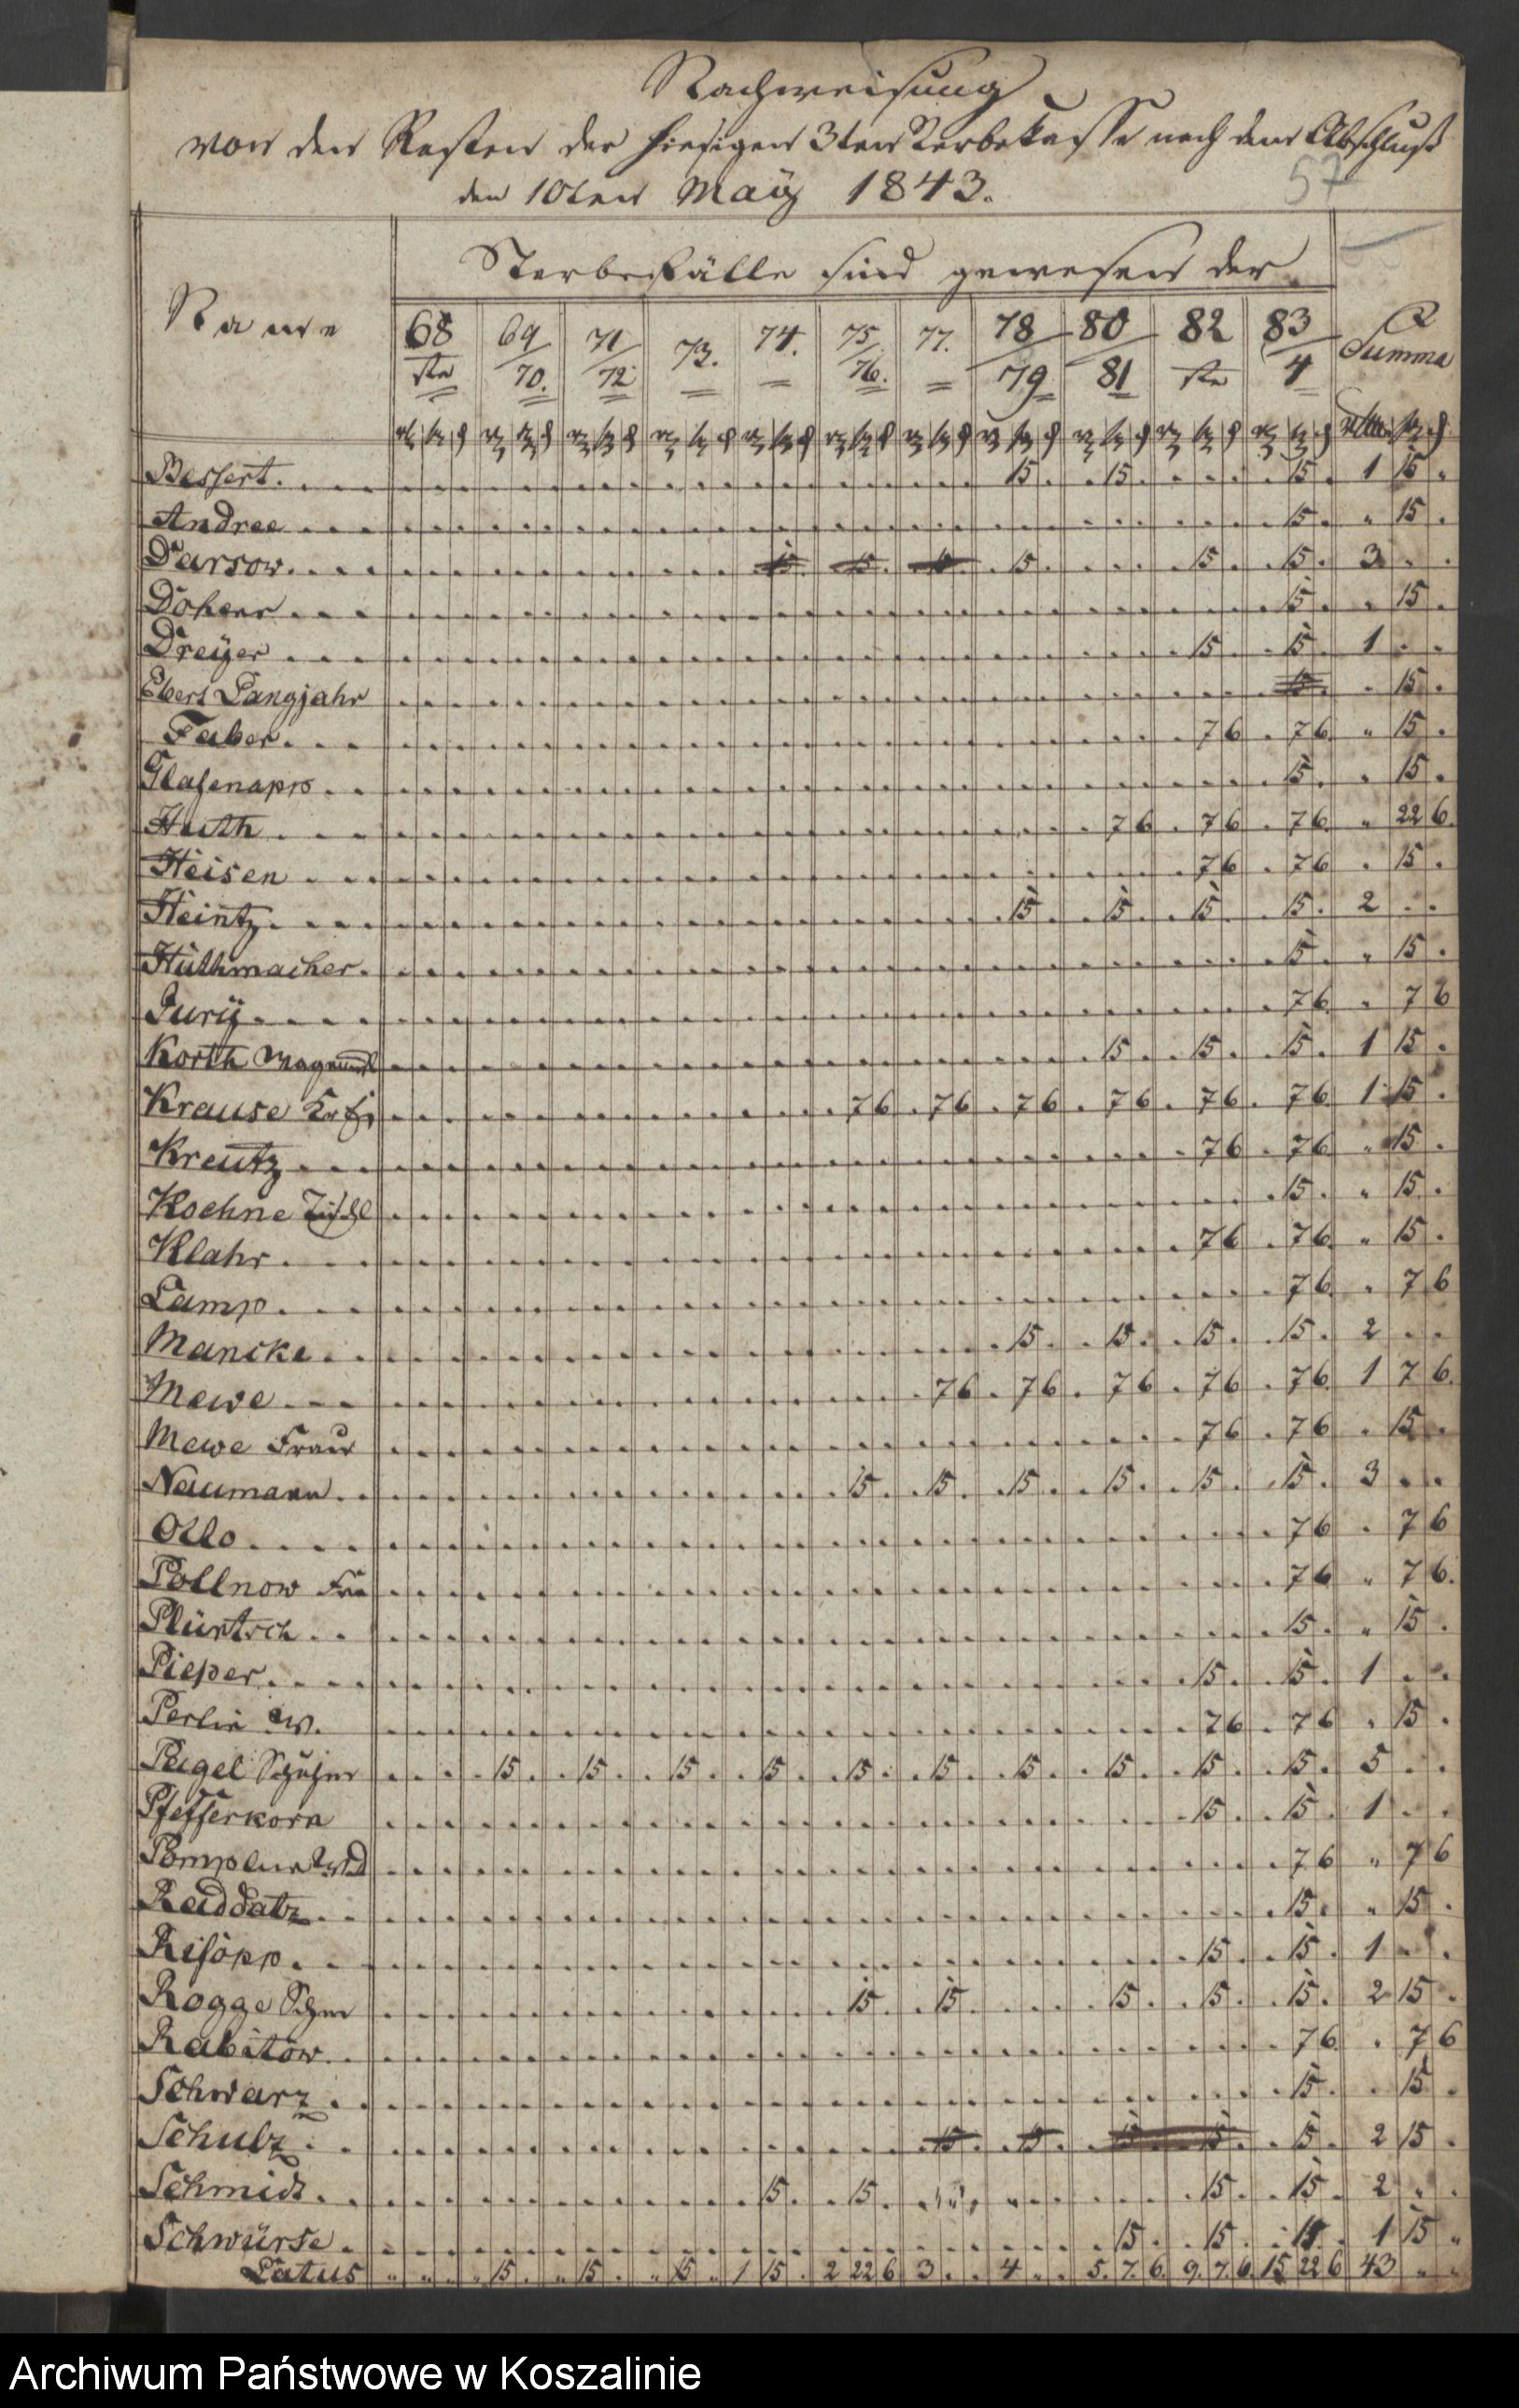 Nachweisung
von den Resten der hiesigen 3ten Sterbekasse nach dem Abschluß
den 10ten Maÿ 1843.
57
Name
Sterbefälle sind gewesen der
Summa
68 69/70. 71/72 73. 74. 75/76. 77. 78/79 80/81 82 83/4
Bessert. . . . 15 . . 15 . . 15 . 1 15 .
Andree . . . 15 . " 15 .
Darsow. . . . 15 . 15 . 15 . 15 . 15 . 15 . 3 . .
Dohenr . . . 15 . " 15 .
Dreÿer . . . 15 . 15 . 1 . .
Ebert Langjahr 15 . . 15 .
Faber. . . . 7 6 . 7 6 " 15 .
Glasenapp . . 15 . . 15 .
Huth . . . 7 6 . 7 6 . 7 6 " 22 6.
Heisen . . . 7 6 . 7 6 . 15 .
Heintz. . . . 15 . 15 . 15 . 15 . 2 . .
Huthmacher. 15 . " 15 .
Jurÿ . . . . 7 6 . 7 6
Korth 15 . 15 . 15 . 1 15 .
Krause 7 6 . 7 6 . 7 6 . 7 6 . 7 6 . 7 6 1 15 .
Kreutz . . . 7 6 . 7 6 " 15 .
Koehne 15 . " 15 .
Klahr . . . 7 6 . 7 6 " 15 .
Lamp . . . 7 6 . 7 6
Mancke . . 15 . 15 . 15 . 15 . 2 . .
Mewe . . . 7 6 . 7 6 . 7 6 . 7 6 . 7 6 1 7 6.
Mewe Frau 7 6 . 7 6 . 15 .
Naumann . . 15 . 15 . 15 . 15 . 15 . 15 . 3 . .
Otto . . . . 7 6 . 7 6
Pollnow 7 6 " 7 6.
Plüntsch . . 15 . " 15 .
Pieper . . . . 15 . 15 . 1 . .
Perlin W. 7 6 . 7 6 . 15 .
Pagel Schuhm 15 . 15 . 15 . 15 . 15 . 15 . 15 . 15 . 15 . 15 . 5 . .
Pfefferkorn 15 . 15 . 1 . .
Pomplun 7 6 " 7 6
Raddatz . . 15 . " 15 .
Risopp . . 15 . 15 . 1 . .
Rogge Schm 15 . 15 . 15 . 15 . 15 . 2 15 .
Rabitow . . 7 6 . 7 6
Schwarz . . 15 . . 15 .
Schulz . . 15 . 15 . 15 . 15 . 15 . 2 15 .
Schmidt . . 15 . 15 . 15 . 15 . 2 . .
Schwürse . 15 . 15 . 15 . 1 15 "
Latus " " . " 15 . " 15 . " 15 . 1 15 . 2 22 6 3 . . 4 " . 5. 7. 6 9. 7. 6 15 22 6 43 " "
Archiwum Państwowe w Koszalinie